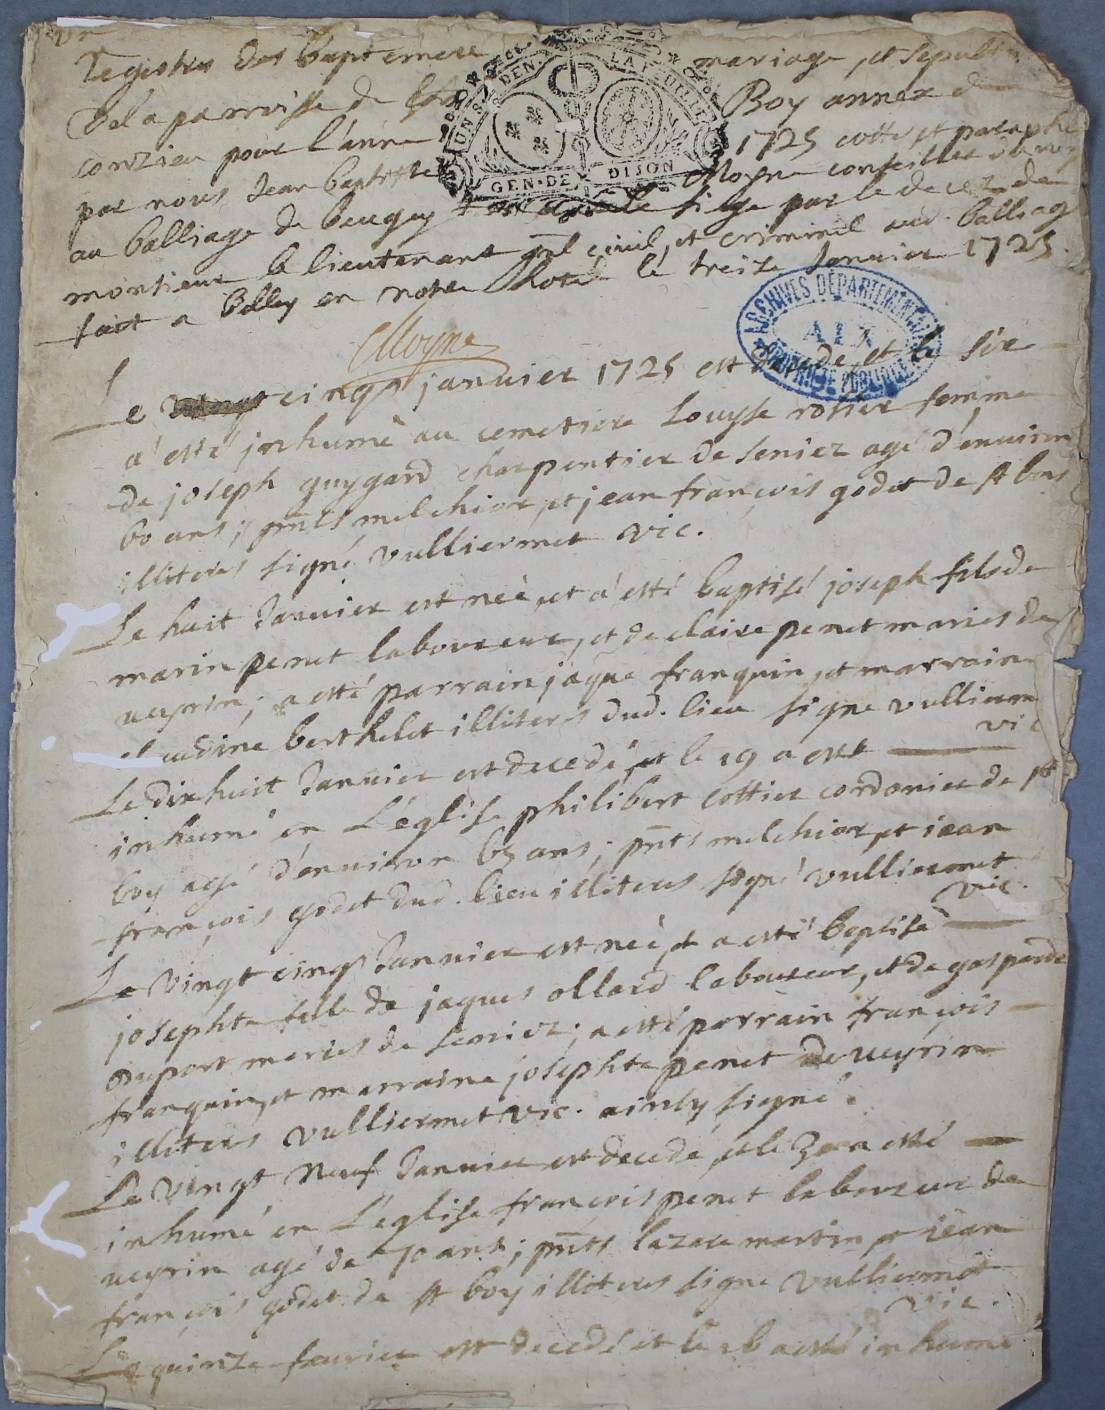 Registre des baptemere mariage, et sepult
de la parroisse de St Boy annex de
conzieu pour l'anne 1725 cotté et paraphé
par nous Jean baptiste Moyne conseiller du roy
au balliage de beugey siege par le decez de
monsieur le lieutenant gnl civil, et criminel aud. balliag
fait a belley en notre hotel le treize Janvier 1725.
GEN·DE DIJON
ARCHIVES DÉPARTEMENTALES
AIN
Moyne
Le cinq janvier 1725 est decede, et le six
a esté inhumé au cemetiere Louyse rosset femme
de joseph guygard charpentier de seniez agé d'environ
60 ans; pnts melchior, et jean françois godet de st bois
illiteres signé vulliermet vic.
Le huit Janvier est neè, et a esté baptisé joseph fils de
marin penet laboureur, et de claire penet mariés de
veyrin; a esté parrain jaque franquin, et marraine
claudine berthelet illiteres dud. lieu signe vulliermet
vic
Le dix huit Janvier est decedé, et le 19 a esté
inhumé en L'église philibert cottier cordonier de st
boy agé d'environ 65 ans; pnts melchior, et jean
françois godet dud. lieu illiteres signé vulliermet
vic.
Le vingt cinq Janvier est neè, et a esté baptisé
josephte fille de jaques ollard laboureur, et de gasparde
Duport mariés de seniez; a esté parrain françois
franquin, et marraine josephte penet de veyrin
illiteres vulliermet vic. ainsy signé.
Le vingt neuf Janvier est decedé, et le 30 a esté
inhumé en L'église françois penet laboureur de
veyrin agé de 70 ans; pnts lazare martin et jean
françois godet de st boy illiteres signe vulliermet
vic.
Le quinze fevrier est decedé et le 16 a esté inhumé